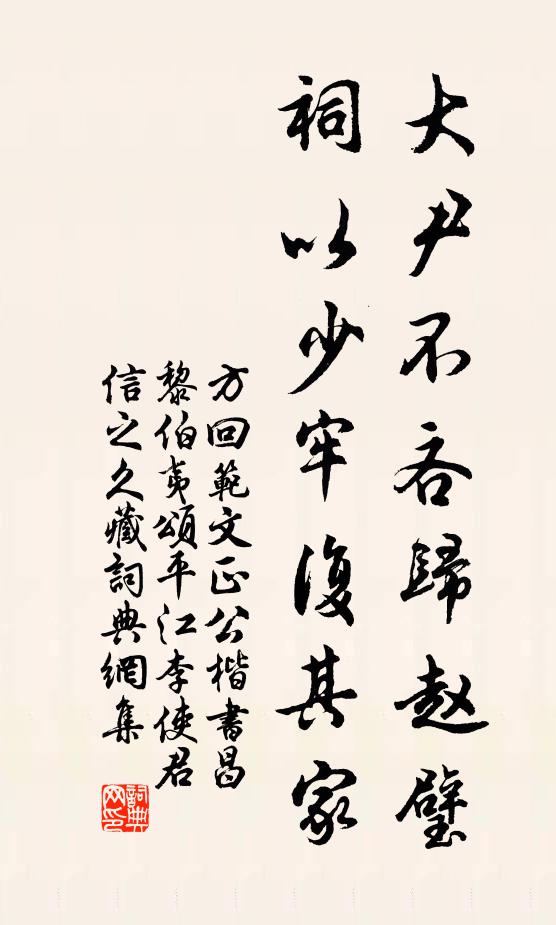 大尹不吝歸趙璧
祠以少牢復其家
方回範文正公楷書昌
黎伯夷頌平江李使君
信之久藏詞典網集
詞典网印